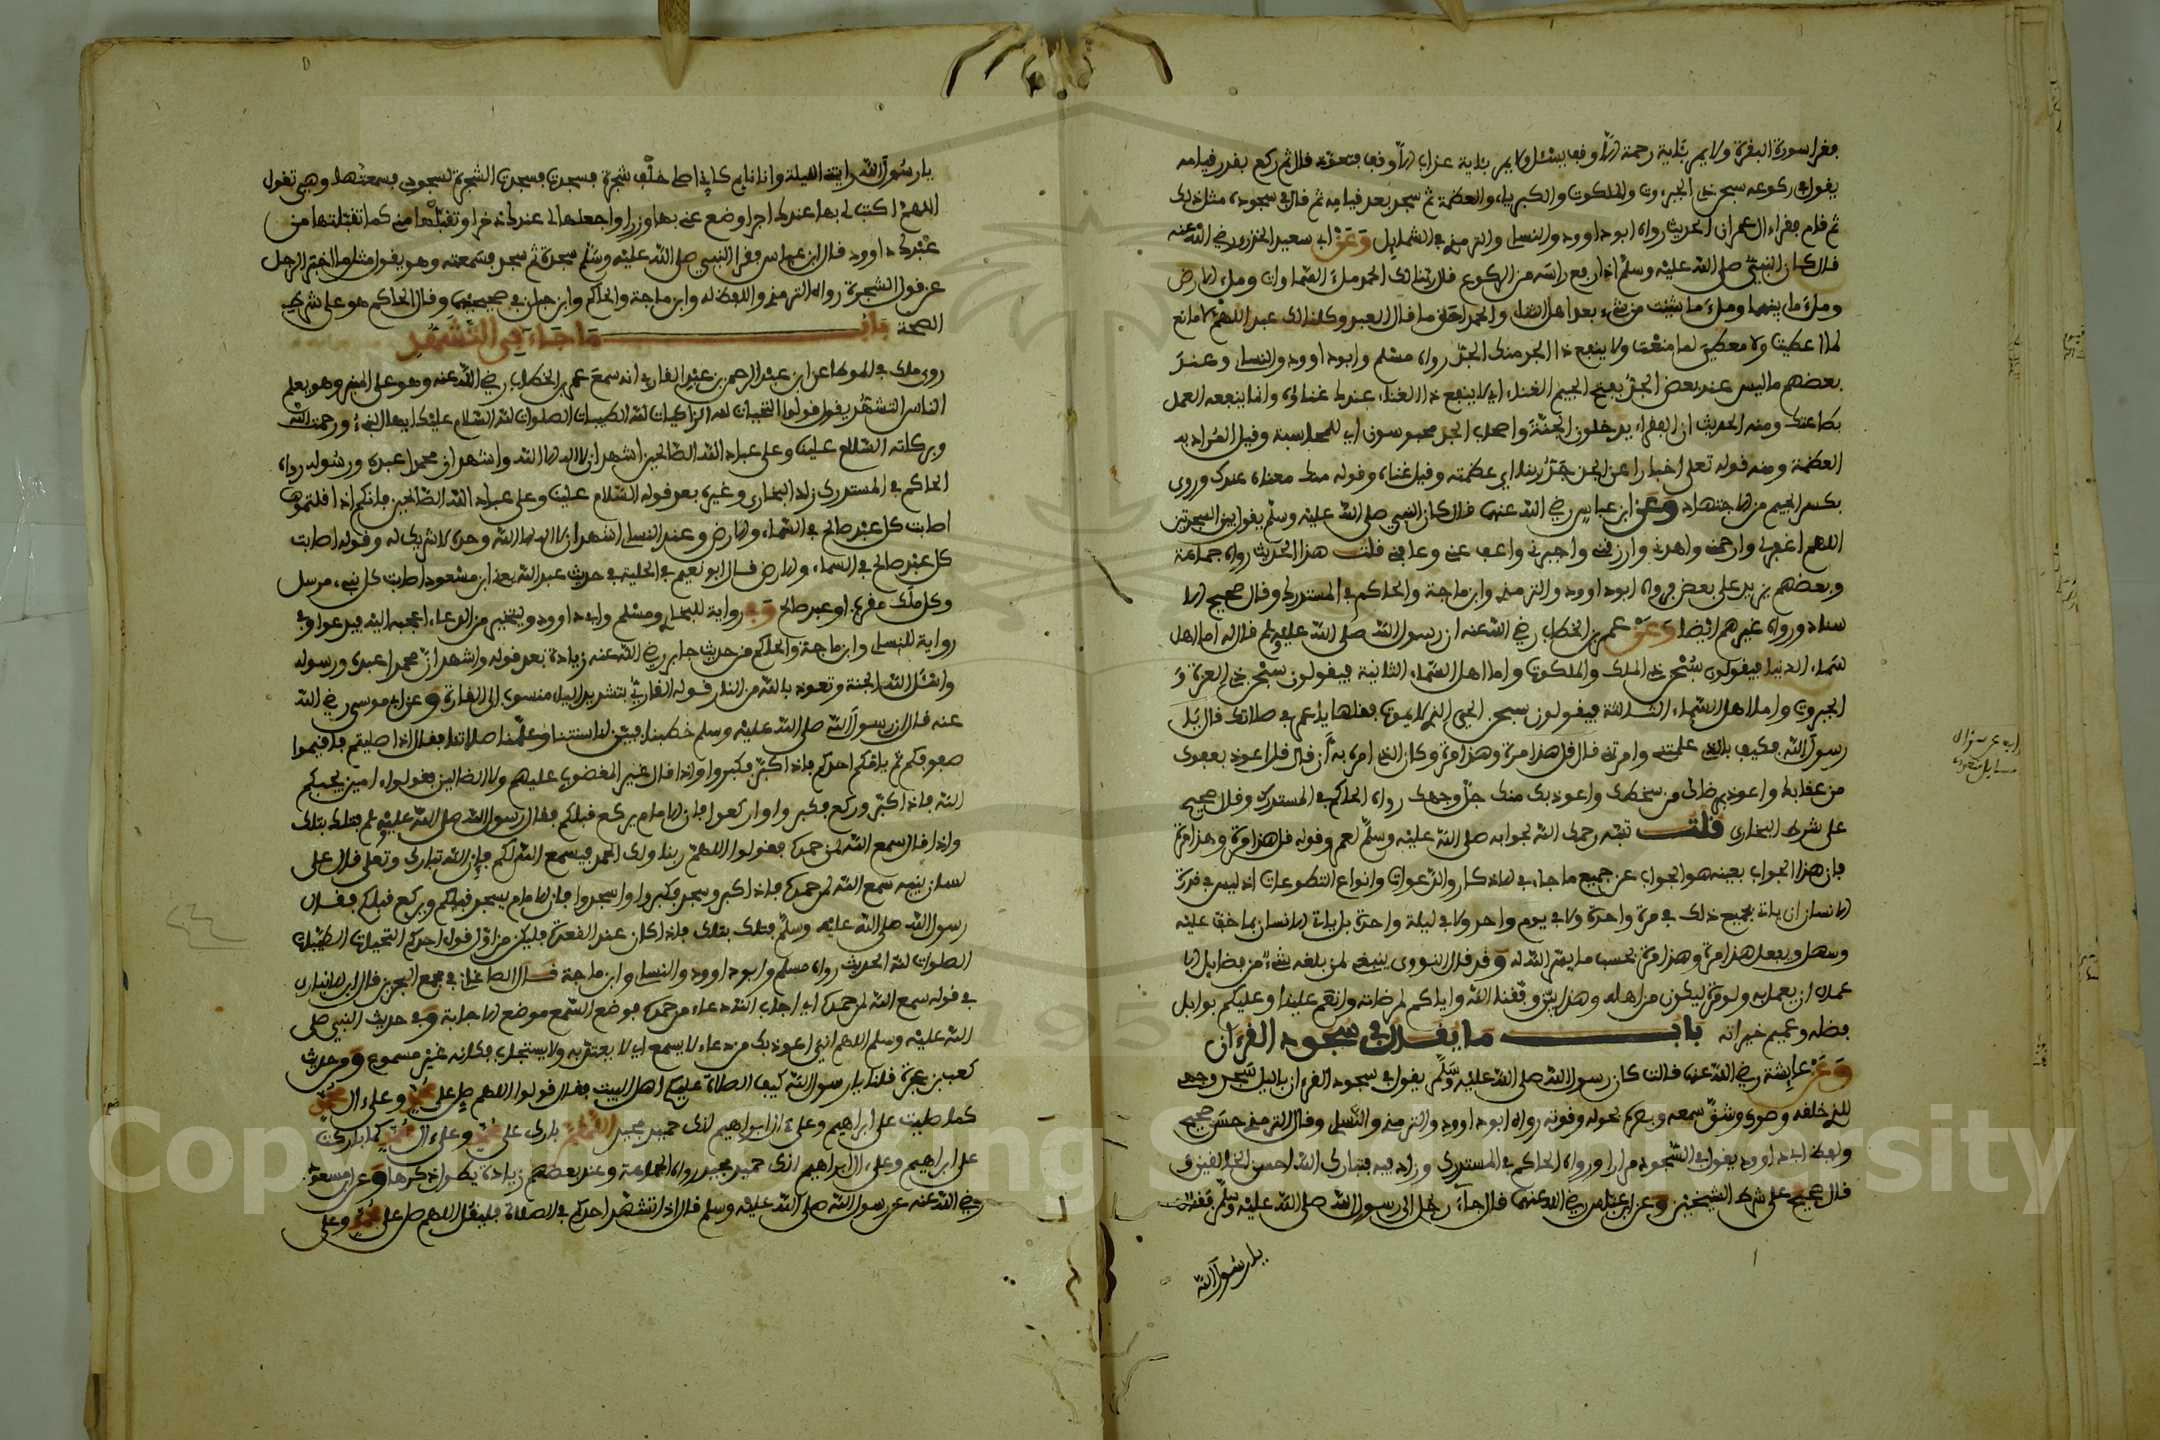 فقرا سورة البقرة ولا يمر بآية رحمة إلا وقف يسئل ولا يمر بآية عذاب إلا وقف فتعوذ قال ثم ركع بقدر قيامه
يقول في ركوعه سبحن ذي الجبروت والملكوت والكبرياء والعظمة ثم سجد بعد قيامه ثم قال في سجوده مثل ذلك
ثم قام فقراء ال عمران الحديث رواه ابو داوود والنسائي والترمذي في الشمايل وعن ابي سعيد الخدري رضي الله عنه
قال كان النبي صلى الله عليه وسلم اذا رفع راسه من الركوع قال ربنا لك الحمد ملء السماوات وملء الارض
وملء ما بينهما وملء ما شئت من شيء بعد اهل الثناء والحمد احق ما قال العبد وكلنا لك عبد اللهم لا مانع
لما اعطيت ولا معطي لما منعت ولا ينفع ذا الجد منك الجد رواه مسلم وابو داوود والنسائي وعند
بعضهم ما ليس عند بعض الجد بفتح الجيم الغناء اي لا ينفع ذا الغناء عندك غناؤه وانما ينفعه العمل
بطاعتك ومنه الحديث ان الفقراء يدخلون الجنة واصحاب الجد محبوسون اي للمحاسبة وقيل المراد به
العظمة ومنه قوله تعلى اخبارا عن الجن جد ربنا اي عظمته وقيل غناه وقوله منك معناه عندك وروي
بكسر الجيم من الاجتهاد وعن ابن عباس رضي الله عنهما قال كان النبي صلى الله عليه وسلم يقول بين السجدتين
اللهم اغفر لي وارحمني واهدني وارزقني واجبرني واعف عني وعافني قلت هذا الحديث رواه جماعة
وبعضهم يزيد على بعض فرواه ابو داوود والترمذي وابن ماجة والحاكم في المستدرك وقال صحيح الا
سناد ورواه غيرهم ايضا وعن عمر بن الخطاب رضي الله عنه ان رسول الله صلى الله عليه وسلم قال له اما اهل
سماء الدنيا فيقولون سبحن ذي الملك والملكوت واما اهل السماء الثانية فيقولون سبحن ذي العزة و
الجبروت واما اهل السماء الثالثة فيقولون سبحن الحي الذي لا يموت فقلها يا عمر في صلاتك قال بل
رسول الله فكيف بالذي علمتني وامرتني قال قل هذا مرة وهذا مرة وكان الذي امره به ان قال قل اعوذ بعفوك
من عقابك واعوذ برضاك من سخطك واعوذ بك منك جل وجهك رواه الحاكم في المستدرك وقال صحيح
على شرط البخاري قلت تنبه رحمك الله لجوابه صلى الله عليه وسلم لعمر وقوله قل هذا مرة وهذا مرة
فان هذا الجواب بعينه هو الجواب عن جميع ما جاء في الاذكار والدعوات وانواع التطوعات اذ ليس في قدرة
الانسان ان ياتي بجميع ذلك في مرة واحدة ولا في يوم واحد ولا في ليلة واحدة بل ياتي الانسان بما خف عليه
وسهل ويفعل هذا مرة وهذا مرة بحسب ما يسر الله له وقد قال النووي ينبغي لمن بلغه شيء من فضايل الا
عمال ان يعمل به ولو مرة ليكون من اهله وهذا بين وفقنا الله واياكم لمرضاته وانعم علينا وعليكم بوابل
فضله وعميم خيراته باب ما يقال في سجود القرءان
وعن عايشة رضي الله عنها قالت كان رسول الله صلى الله عليه وسلم يقول في سجود القرءان بالليل سجد وجهي
للذي خلقه وصوره وشق سمعه وبصره بحوله وقوته رواه ابو داوود والترمذي والنسائي وقال الترمذي حسن صحيح
ولفظ ابي داوود يقول في السجود مرارا ورواه الحاكم في المستدرك وزاد فيه فتبارك الله احسن الخالقين و
قال صحيح على شرط الشيخين وعن ابن عباس رضي الله عنهما قال جاء رجل الى رسول الله صلى الله عليه وسلم فقال
يا رسول الله
يا رسول الله رايتني الليلة وانا نايم كاني اصلي خلف شجرة فسجدت فسجدت الشجرة لسجودي فسمعتها وهي تقول
اللهم اكتب لي بها عندك اجرا وضع عني بها وزرا واجعلها لي عندك ذخرا وتقبلها مني كما تقبلتها من
عبدك داوود قال ابن عباس فقرا النبي صلى الله عليه وسلم سجدة ثم سجد فسمعته وهو يقول مثل ما اخبر الرجل
عن قول الشجرة رواه الترمذي واللفظ له وابن ماجة والحاكم وابن حبان في صحيحهما وقال الحاكم هو على شرط
الصحة باب ما جاء في التشهد
روى ملك في الموطا عن ابن عبد الرحمن بن عبد القاري انه سمع عمر بن الخطاب رضي الله عنه وهو على المنبر وهو يعلم
الناس التشهد يقول قولوا التحيات لله الزاكيات لله الطيبات الصلوات لله السلام عليك ايها النبي ورحمت الله
وبركاته السلام علينا وعلى عباد الله الصالحين اشهد ان لا اله الا الله واشهد ان محمدا عبده ورسوله رواه
الحاكم في المستدرك زاد البخاري وغيره بعد قوله السلام علينا وعلى عباد الله الصالحين فانكم اذا قلتموها
اصابت كل عبد صالح في السماء والارض وعند النسائي اشهد ان لا اله الا الله وحده لا شريك له وقوله اصابت
كل عبد صالح في السماء والارض قال ابو نعيم في الحلية في حديث عبد الله يعني ابن مسعود اصابت كل نبي مرسل
وكل ملك مقرب او عبد صالح وفي رواية للبخاري ومسلم وابي داوود ويتخير من الدعاء اعجبه اليه فيدعوا وفي
رواية للنسائي وابن ماجة والحاكم من حديث جابر رضي الله عنه زيادة بعد قوله واشهد ان محمدا عبده ورسوله
واسئل الله الجنة وتعوذ بالله من النار قوله القاري بتشديد الياء منسوب الى القارة وعن ابي موسى رضي الله
عنه قال ان رسول الله صلى الله عليه وسلم خطبنا فبين لنا سنتنا وعلمنا صلاتنا فقال اذا صليتم فاقيموا
صفوفكم ثم يامكم احدكم فاذا كبر فكبروا واذا قال غير المغضوب عليهم ولا الضالين فقولوا ءامين يحبكم
الله فاذا كبر وركع فكبروا واركعوا فان الامام يركع قبلكم فقال رسول الله صلى الله عليه وسلم فتلك بتلك
واذا قال سمع الله لمن حمده فقولوا اللهم ربنا ولك الحمد يسمع الله لكم فان الله تبارك وتعلى قال على
لسان نبيه سمع الله لمن حمده فاذا كبر وسجد فكبروا واسجدوا فان الامام يسجد قبلكم ويرفع قبلكم فقال
رسول الله صلى الله عليه وسلم فتلك بتلك فاذا كان عند القعدة فليكن من اول قول احدكم التحيات الطيبات
الصلوات لله الحديث رواه مسلم وابو داوود والنسائي وابن ماجة قال الصاغاني في مجمع البحرين قال ابن الانباري
في قوله سمع الله لمن حمده اي اجاب الله دعاء من حمده فوضع السمع موضع الاجابة وفي حديث النبي صلى
الله عليه وسلم اللهم اني اعوذ بك من دعاء لا يسمع اي لا يعتد به ولا يستجاب فكانه غير مسموع ومن حديث
كعب بن عجرة قلنا يا رسول الله كيف الصلاة عليكم اهل البيت فقال قولوا اللهم صل على محمد وعلى ءال محمد
كما صليت على ابراهيم وعلى ءال ابراهيم انك حميد مجيد اللهم بارك على محمد وعلى ءال محمد كما باركت
على ابراهيم وعلى ءال ابراهيم انك حميد مجيد رواه الجماعة وعند بعضهم زيادة يطول ذكرها وعن ابن مسعود
رضي الله عنه عن رسول الله صلى الله عليه وسلم قال اذا تشهد احدكم في الصلاة فليقل اللهم صل على محمد وعلى
Copyright © King Saud University